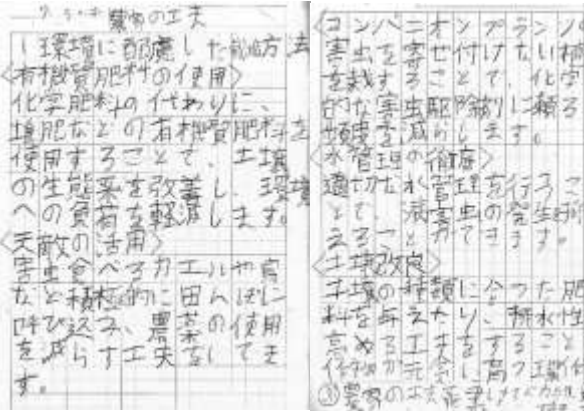 農家の工夫
環境に配慮した栽培方法
〈有機質肥料の使用〉
化学肥料の代わりに、
堆肥などの有機質肥料を
使用することで、土壌
の生態系を改善し、環境
への負荷を軽減します。
〈天敵の活用〉
害虫食べるカエルや
など積極的に田んぼに
呼び込み、農薬の使用
を減らす工夫をしてま
す。
〈コンパニオンプラン
害虫を寄せ付けない植
を栽することで、化学
的な害虫駆除剤に頼る
頻度を減らします。
〈水管理の徹底〉
適切な水管理を行うこ
とで、害虫の発生
えることができます。
〈土壌改良〉
土壌の種類に合った肥
料を与えたり、排水性
高める工夫をすること
が元気に育つ環
③農家の工夫